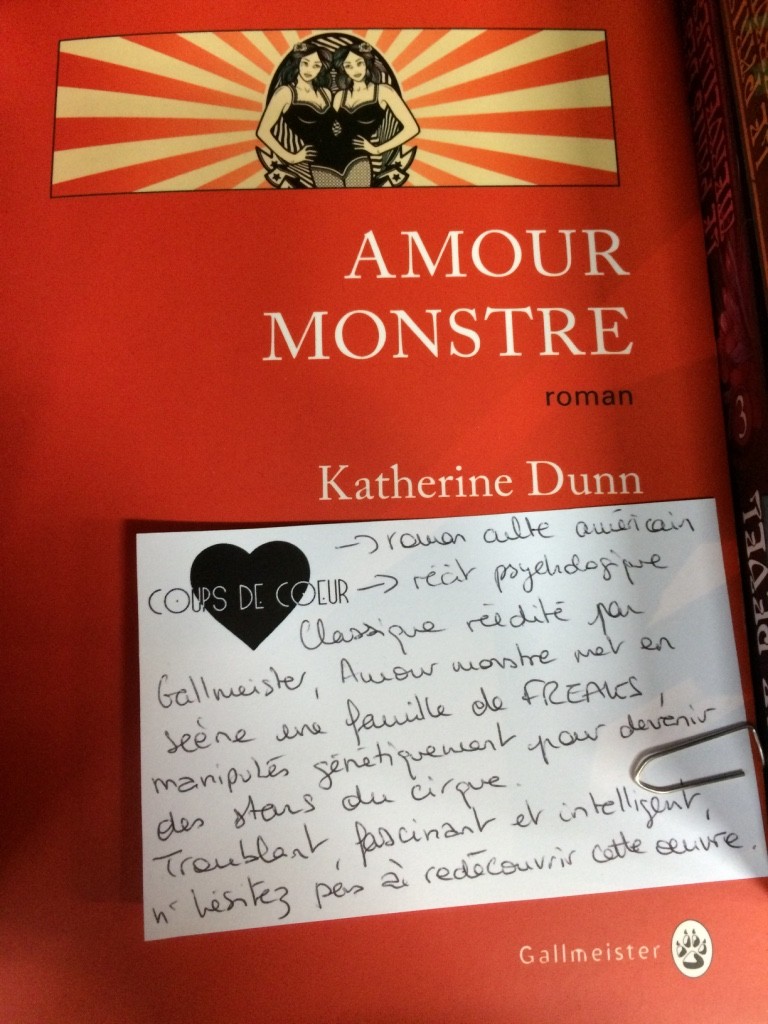 AMOUR
MONSTRE
roman
Katherine Dunn
COUPS DE COEUR
→ roman culte américain
→ récit psychologique
Classique réédité par
Gallmeister, Amour monstre met en
scène une famille de FREAKS,
manipulés génétiquement pour devenir
des stars du cirque.
Troublant, fascinant et intelligent,
n'hésitez pas à redécouvrir cette œuvre.
Gallmeister
3